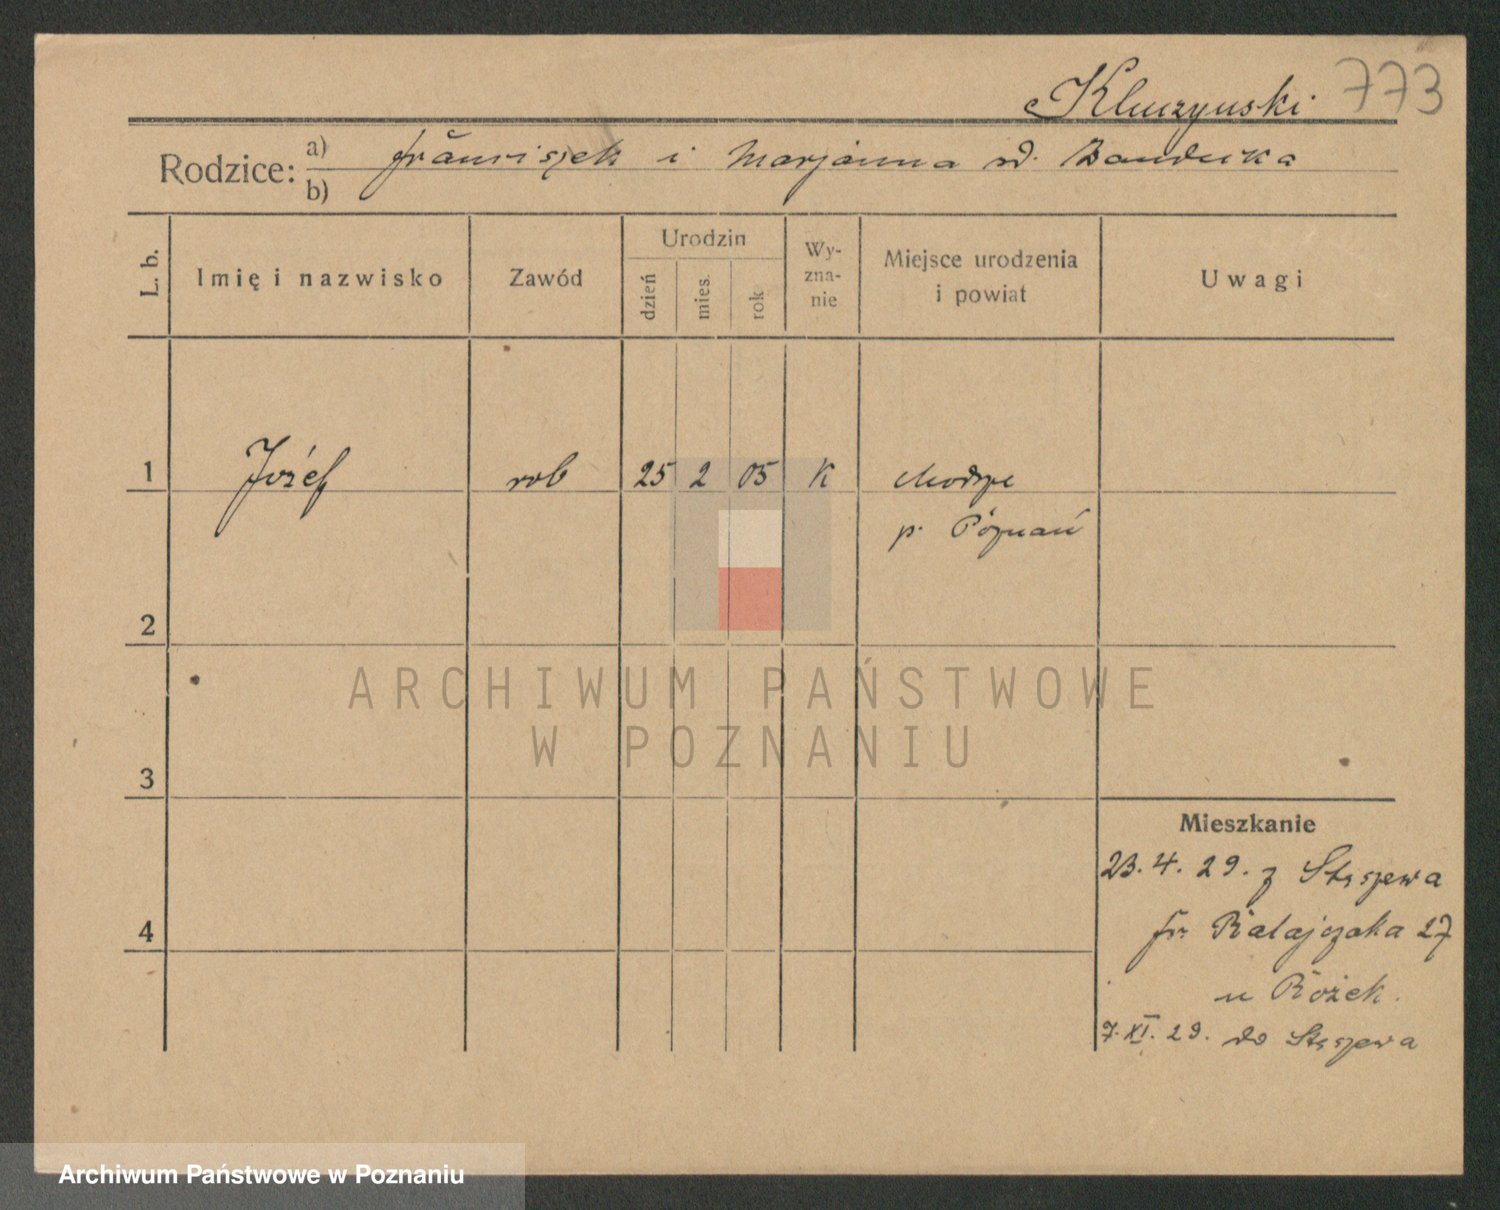 Kluczynski 773
Rodzice: a) franciszek i Marjanna
b)
L. b.
Imię i nazwisko
Zawód
Urodzin
dzień
mies.
rok
Wy-
zna-
nie
Miejsce urodzenia
i powiat
Uwagi
1 Józef rob 25 2 05 K
p. Poznań
2
3
4
Mieszkanie
23. 4. 29. z Stęszewa
fr Ratajczaka 27
u Rożek.
7. XI. 29. do Stęszewa
ARCHIWUM PAŃSTWOWE
W POZNANIU
Archiwum Państwowe w Poznaniu